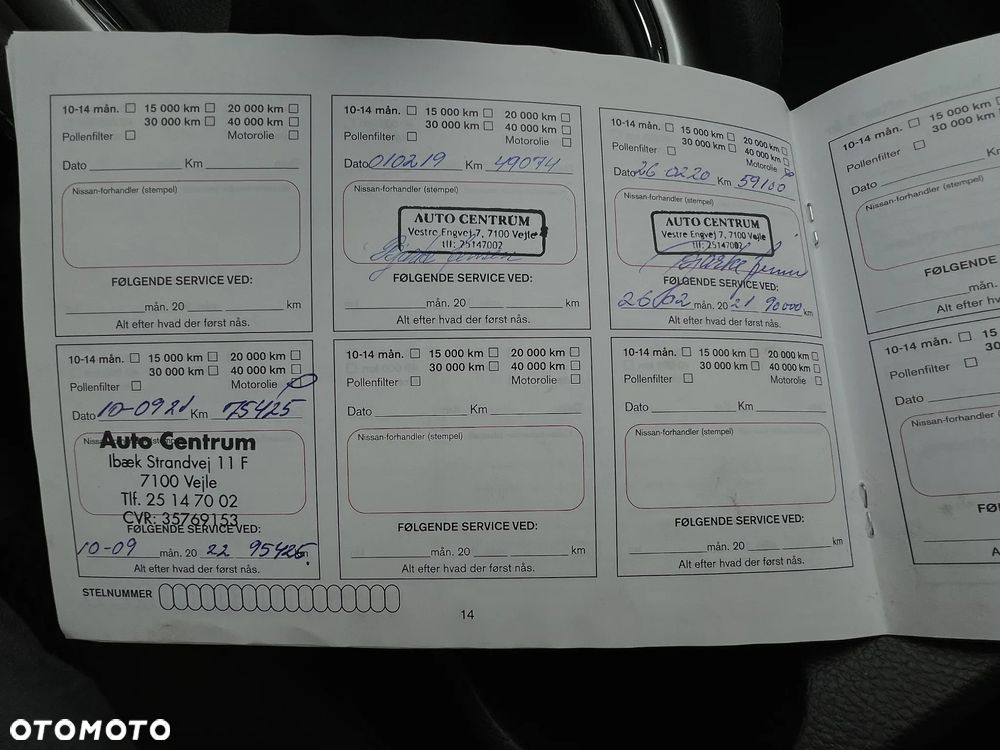 10-14 mån. 15 000 km 20 000 km
30 000 km 40 000 km
Pollenfilter Motorolie
Dato Km
Nissan-forhandler (stempel)
FØLGENDE SERVICE VED:
mån. 20 km
Alt efter hvad der først nås.
10-14 mån. 15 000 km 20 000 km
30 000 km 40 000 km
Pollenfilter Motorolie
Dato 010219 Km 49074
Nissan-forhandler (stempel)
AUTO CENTRUM
Vestre Engvej 7, 7100 Vejle
tlf: 25147002
FØLGENDE SERVICE VED:
mån. 20 km
Alt efter hvad der først nås.
10-14 mån. 15 000 km 20 000 km
30 000 km 40 000 km
Pollenfilter Motorolie
Dato 26 0220 Km 59100
Nissan-forhandler (stempel)
AUTO CENTRUM
Vestre Engvej 7, 7100 Vejle
tlf: 25147002
FØLGENDE SERVICE VED:
26/02 mån. 20 21 90000 km
Alt efter hvad der først nås.
10-14 mån. 15 000 km
30 000 km
Pollenfilter
Dato Km
Nissan-forhandler (stempel)
FØLGENDE
mån.
Alt efter h
10-14 mån. 15 000 km 20 000 km
30 000 km 40 000 km
Pollenfilter Motorolie
Dato 10-0921 Km 75425
Auto Centrum
Ibæk Strandvej 11 F
7100 Vejle
Tlf. 25 14 70 02
CVR: 35769153
FØLGENDE SERVICE VED:
10-09 mån. 20 22 95425 km
Alt efter hvad der først nås.
10-14 mån. 15 000 km 20 000 km
30 000 km 40 000 km
Pollenfilter Motorolie
Dato Km
Nissan-forhandler (stempel)
FØLGENDE SERVICE VED:
mån. 20 km
Alt efter hvad der først nås.
10-14 mån. 15 000 km 20 000 km
30 000 km 40 000 km
Pollenfilter Motorolie
Dato Km
Nissan-forhandler (stempel)
FØLGENDE SERVICE VED:
mån. 20 km
Alt efter hvad der først nås.
10-14 mån. 15 000
30 000
Pollenfilter
Dato
Nissan-forhandler (stempel)
Alt e
STELNUMMER
14
OTOMOTO